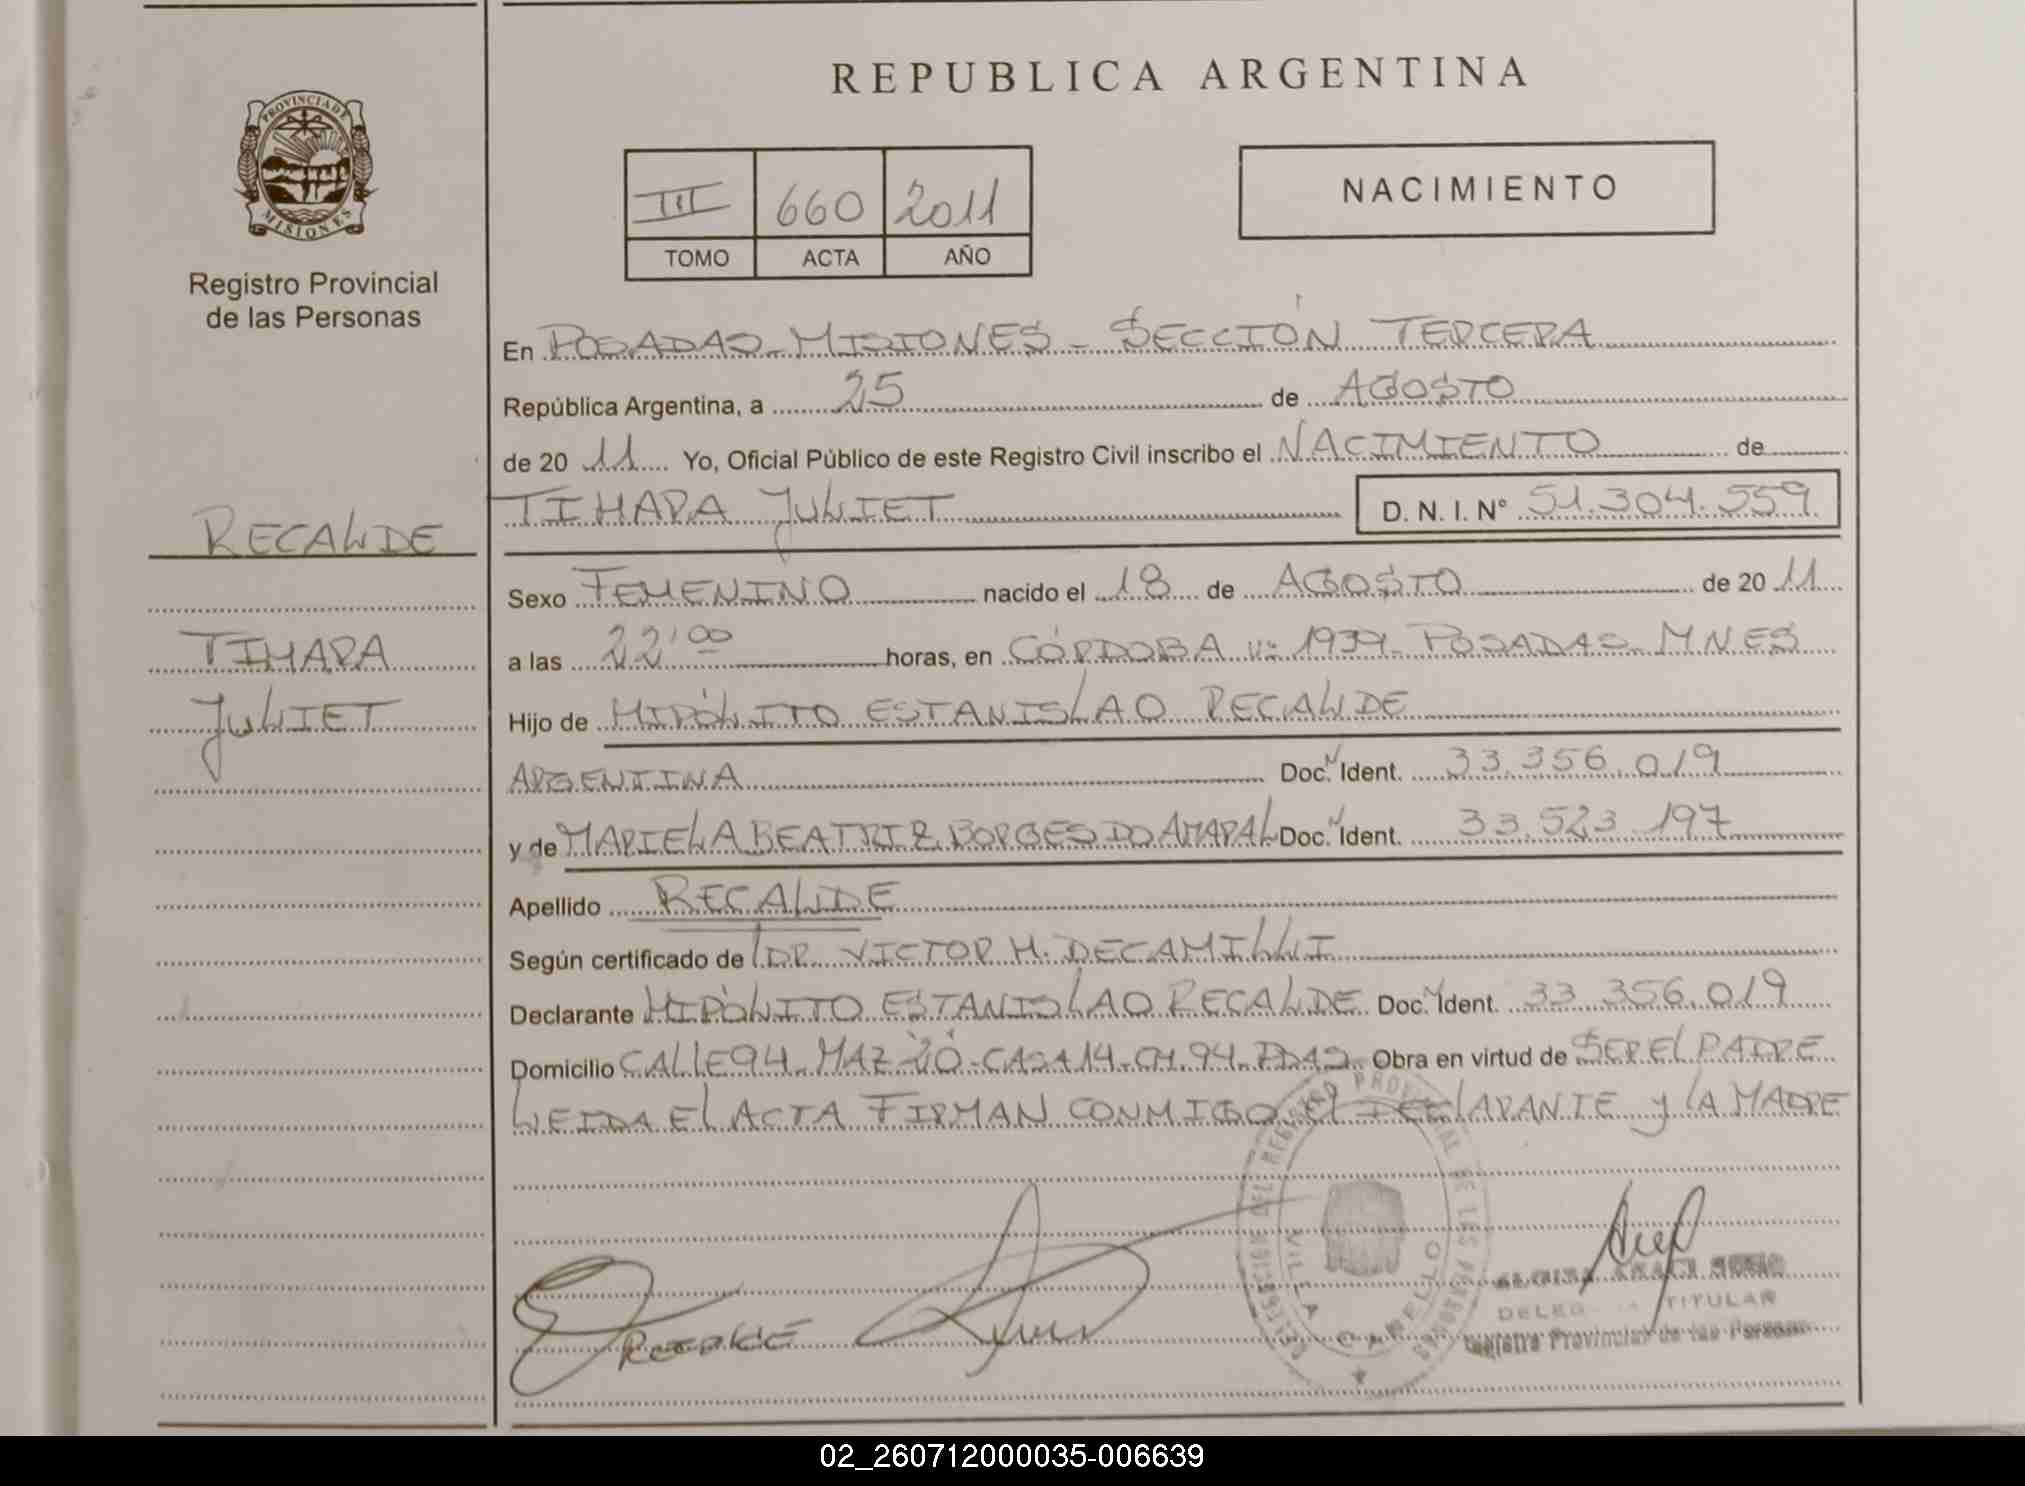 REPUBLICA ARGENTINA
PROVINCIA DE
MISIONES
Registro Provincial
de las Personas
NACIMIENTO
III 660 2011
TOMO ACTA AÑO
En POSADAS - MISIONES - SECCIÓN TERCERA
República Argentina, a 25 de AGOSTO
de 20 11 Yo, Oficial Público de este Registro Civil inscribo el NACIMIENTO de
TIHARA JULIET D. N. I. N° 51.304.559
RECALDE
TIHARA
JULIET
Sexo FEMENINO nacido el 18 de AGOSTO de 20 11
a las 22'00 horas, en CÓRDOBA Nº 1939 - POSADAS - MNES
Hijo de HIPÓLITO ESTANISLAO RECALDE
ARGENTINA Doc. N Ident. 33.356.019
y de MARIELA BEATRIZ BORGES DO AMARAL Doc. N Ident. 33.523.197
Apellido RECALDE
Según certificado de DR. VICTOR H. DECAMILLI
Declarante HIPÓLITO ESTANISLAO RECALDE Doc. N Ident. 33.356.019
Domicilio CALLE 94 - MAZ "20" - CASA 14 - CH. 94 - PDAS Obra en virtud de SER EL PADRE
LEIDA EL ACTA FIRMAN CONMIGO EL DECLARANTE Y LA MADRE
DEL REGISTRO PROVINCIAL DE LAS PERSONAS
VILLA CABELLO
TITULAR
Registro Provincial de las Personas
02_260712000035-006639